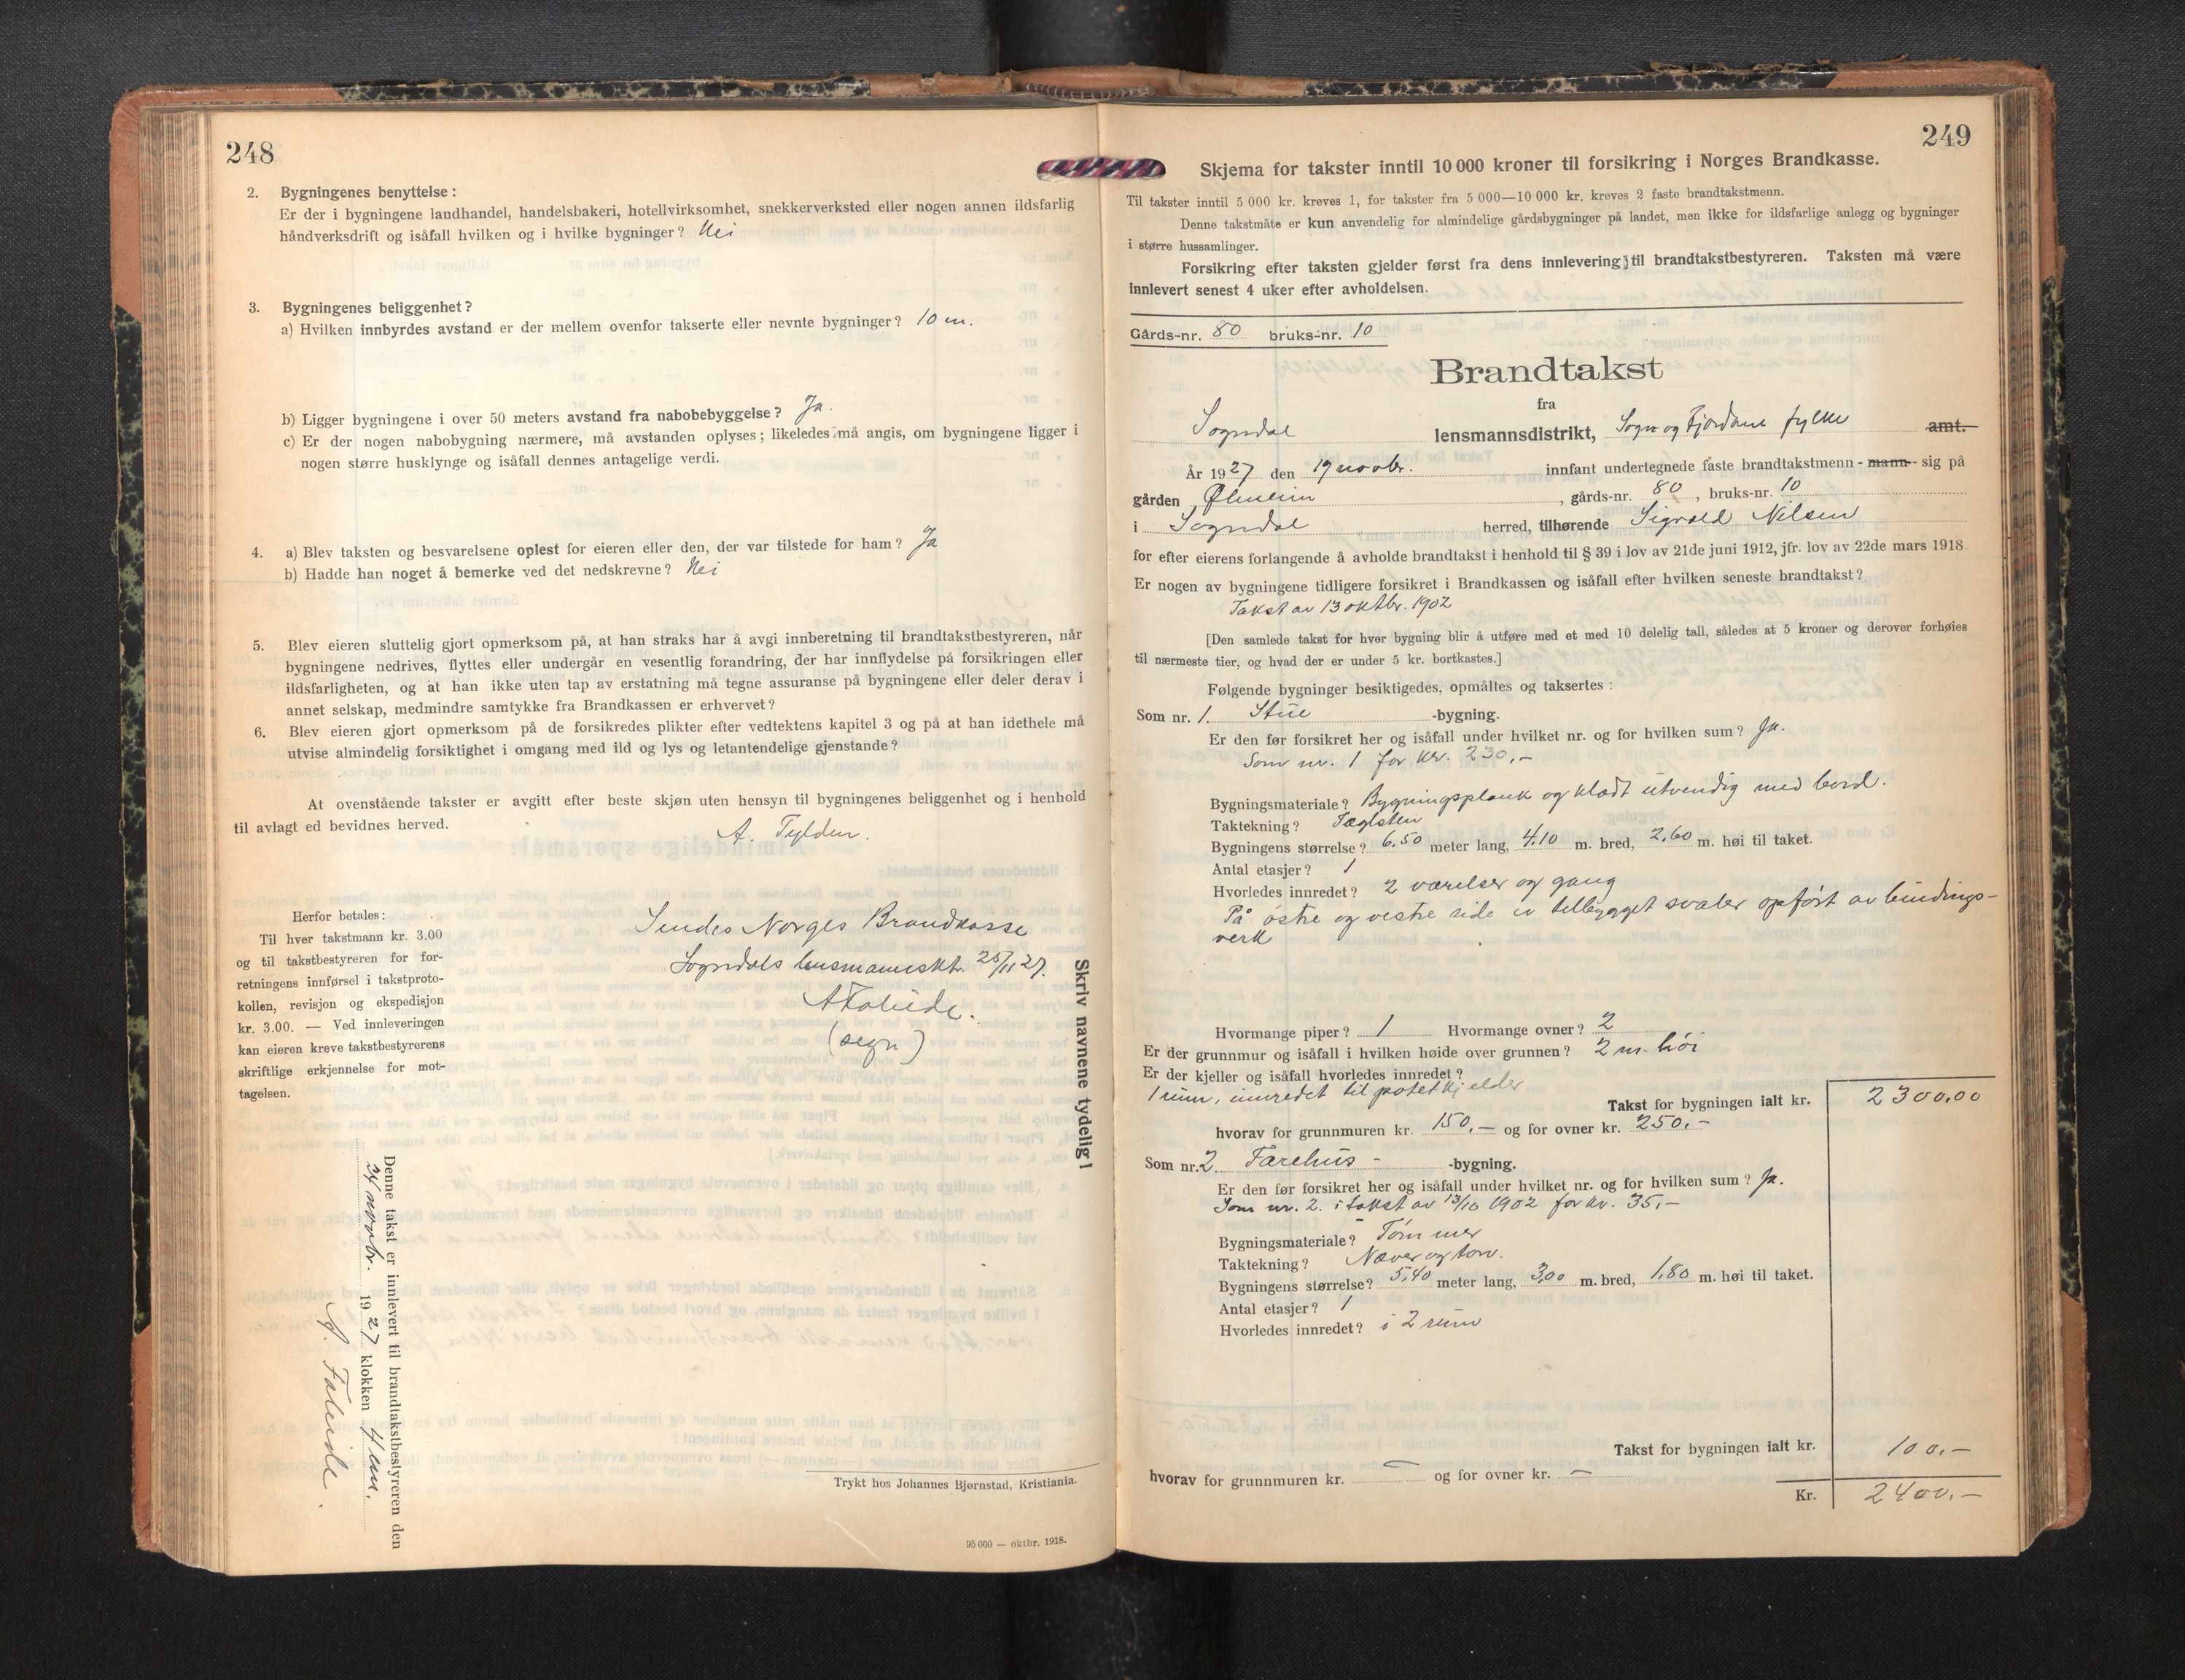 248
2. Bygningenes benyttelse:
Er der i bygningene landhandel, handelsbakeri, hotellvirksomhet, snekkerverksted eller nogen annen ildsfarlig
håndverksdrift og isåfall hvilken og i hvilke bygninger? Nei
3. Bygningenes beliggenhet?
a) Hvilken innbyrdes avstand er der mellem ovenfor takserte eller nevnte bygninger? 10 m.
b) Ligger bygningene i over 50 meters avstand fra nabobebyggelse? Ja.
c) Er der nogen nabobygning nærmere, må avstanden oplyses; likeledes må angis, om bygningene ligger i
nogen større husklynge og isåfall dennes antagelige verdi.
4. a) Blev taksten og besvarelsene oplest for eieren eller den, der var tilstede for ham? Ja
b) Hadde han noget å bemerke ved det nedskrevne? Nei
5. Blev eieren sluttelig gjort opmerksom på, at han straks har å avgi innberetning til brandtakstbestyreren, når
bygningene nedrives, flyttes eller undergår en vesentlig forandring, der har innflydelse på forsikringen eller
ildsfarligheten, og at han ikke uten tap av erstatning må tegne assuranse på bygningene eller deler derav i
annet selskap, medmindre samtykke fra Brandkassen er erhvervet?
6. Blev eieren gjort opmerksom på de forsikredes plikter efter vedtektens kapitel 3 og på at han idethele må
utvise almindelig forsiktighet i omgang med ild og lys og letantendelige gjenstande?
At ovenstående takster er avgitt efter beste skjøn uten hensyn til bygningenes beliggenhet og i henhold
til avlagt ed bevidnes herved.
A. Tylden.
Herfor betales:
Til hver takstmann kr. 3.00
og til takstbestyreren for for-
retningens innførsel i takstproto-
kollen, revisjon og ekspedisjon
kr. 3.00. — Ved innleveringen
kan eieren kreve takstbestyrerens
skriftlige erkjennelse for mot-
tagelsen.
Sendes Norges Brandkasse
Sogndals lensmannskt. 25/11 27.
A Faleide.
(sign)
Skriv navnene tydelig!
Denne takst er innlevert til brandtakstbestyreren den
24 novbr. 1927 klokken 4 em.
A. Faleide.
Trykt hos Johannes Bjørnstad, Kristiania.
95 000 — oktbr. 1918.
249
Skjema for takster inntil 10 000 kroner til forsikring i Norges Brandkasse.
Til takster inntil 5 000 kr. kreves 1, for takster fra 5 000—10 000 kr. kreves 2 faste brandtakstmenn.
Denne takstmåte er kun anvendelig for almindelige gårdsbygninger på landet, men ikke for ildsfarlige anlegg og bygninger
i større hussamlinger.
Forsikring efter taksten gjelder først fra dens innlevering til brandtakstbestyreren. Taksten må være
innlevert senest 4 uker efter avholdelsen.
Gårds-nr. 80 bruks-nr. 10
Brandtakst
fra
Sogndal lensmannsdistrikt, Sogn og Fjordane fylke amt.
År 1927 den 19 novbr. innfant undertegnede faste brandtakstmenn - mann - sig på
gården Ølmheim, gårds-nr. 80, bruks-nr. 10
i Sogndal herred, tilhørende Sigvald Nilsen
for efter eierens forlangende å avholde brandtakst i henhold til § 39 i lov av 21de juni 1912, jfr. lov av 22de mars 1918.
Er nogen av bygningene tidligere forsikret i Brandkassen og isåfall efter hvilken seneste brandtakst?
Takst av 13 oktbr. 1902
[Den samlede takst for hver bygning blir å utføre med et med 10 delelig tall, således at 5 kroner og derover forhøies
til nærmeste tier, og hvad der er under 5 kr. bortkastes.]
Følgende bygninger besiktigedes, opmåltes og taksertes:
Som nr. 1. Stue -bygning.
Er den før forsikret her og isåfall under hvilket nr. og for hvilken sum? Ja.
Som nr. 1 for kr. 230,-
Bygningsmateriale? Bygningsplank og klædt utvendig med bord.
Taktekning? Tæglsten
Bygningens størrelse? 6.50 meter lang, 4.10 m. bred, 2.60 m. høi til taket.
Antal etasjer? 1
Hvorledes innredet? 2 værelser og gang
På østre og vestre side er tilbygget svaler opført av bindings-
verk
Hvormange piper? 1 Hvormange ovner? 2
Er der grunnmur og isåfall i hvilken høide over grunnen? 2 m. høi
Er der kjeller og isåfall hvorledes innredet?
1 rum, innredet til potetkjelder
Takst for bygningen ialt kr. 2300.00
hvorav for grunnmuren kr. 150.— og for ovner kr. 250.—
Som nr. 2. Farehus - -bygning.
Er den før forsikret her og isåfall under hvilket nr. og for hvilken sum? Ja.
Som nr. 2. i takst av 13/10 1902 for kr. 35.—
Bygningsmateriale? Tømmer
Taktekning? Næver og torv.
Bygningens størrelse? 5,40 meter lang, 3,00 m. bred, 1,80 m. høi til taket.
Antal etasjer? 1
Hvorledes innredet? i 2 rum
Takst for bygningen ialt kr. 100.—
hvorav for grunnmuren kr. — og for ovner kr. —
Kr. 2400.—